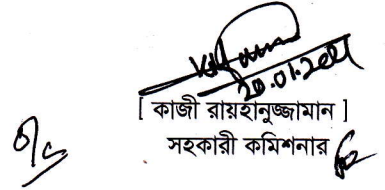 20.01.2021
[ কাজী রায়হানুজ্জামান ]
সহকারী কমিশনার